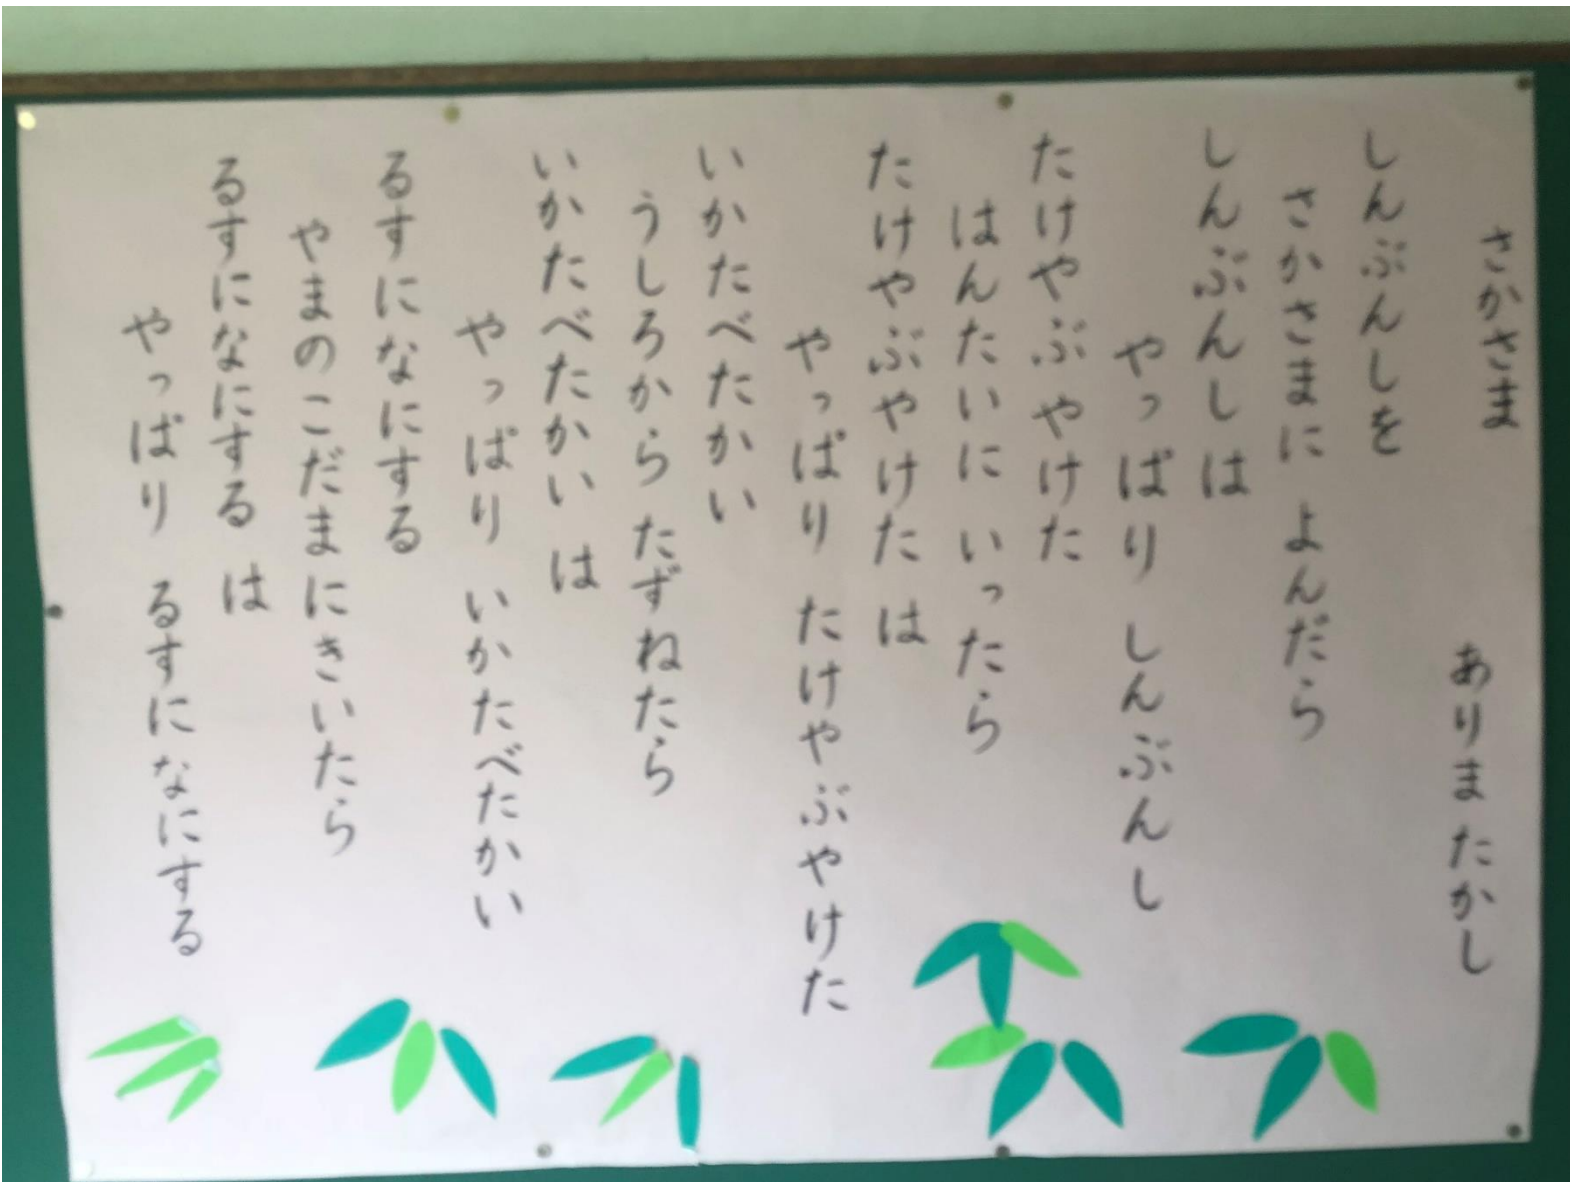 さかさま
ありま たかし
しんぶんしを
さかさまに よんだら
しんぶんしは
やっぱり しんぶんし
たけやぶ やけた
はんたいに いったら
たけやぶやけた は
やっぱり たけやぶやけた
いかたべたかい
うしろから たずねたら
いかたべたかい は
やっぱり いかたべたかい
るすになにする
やまのこだまにきいたら
るすになにする は
やっぱり るすになにする